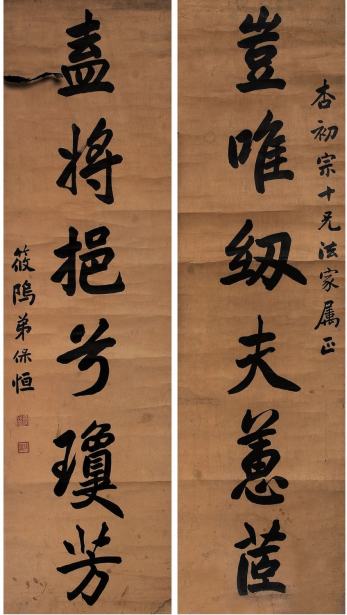 杏初宗十兄法家属正
豈唯紉夫蕙茝
盍將挹兮瓊芳
筱隖弟保恒